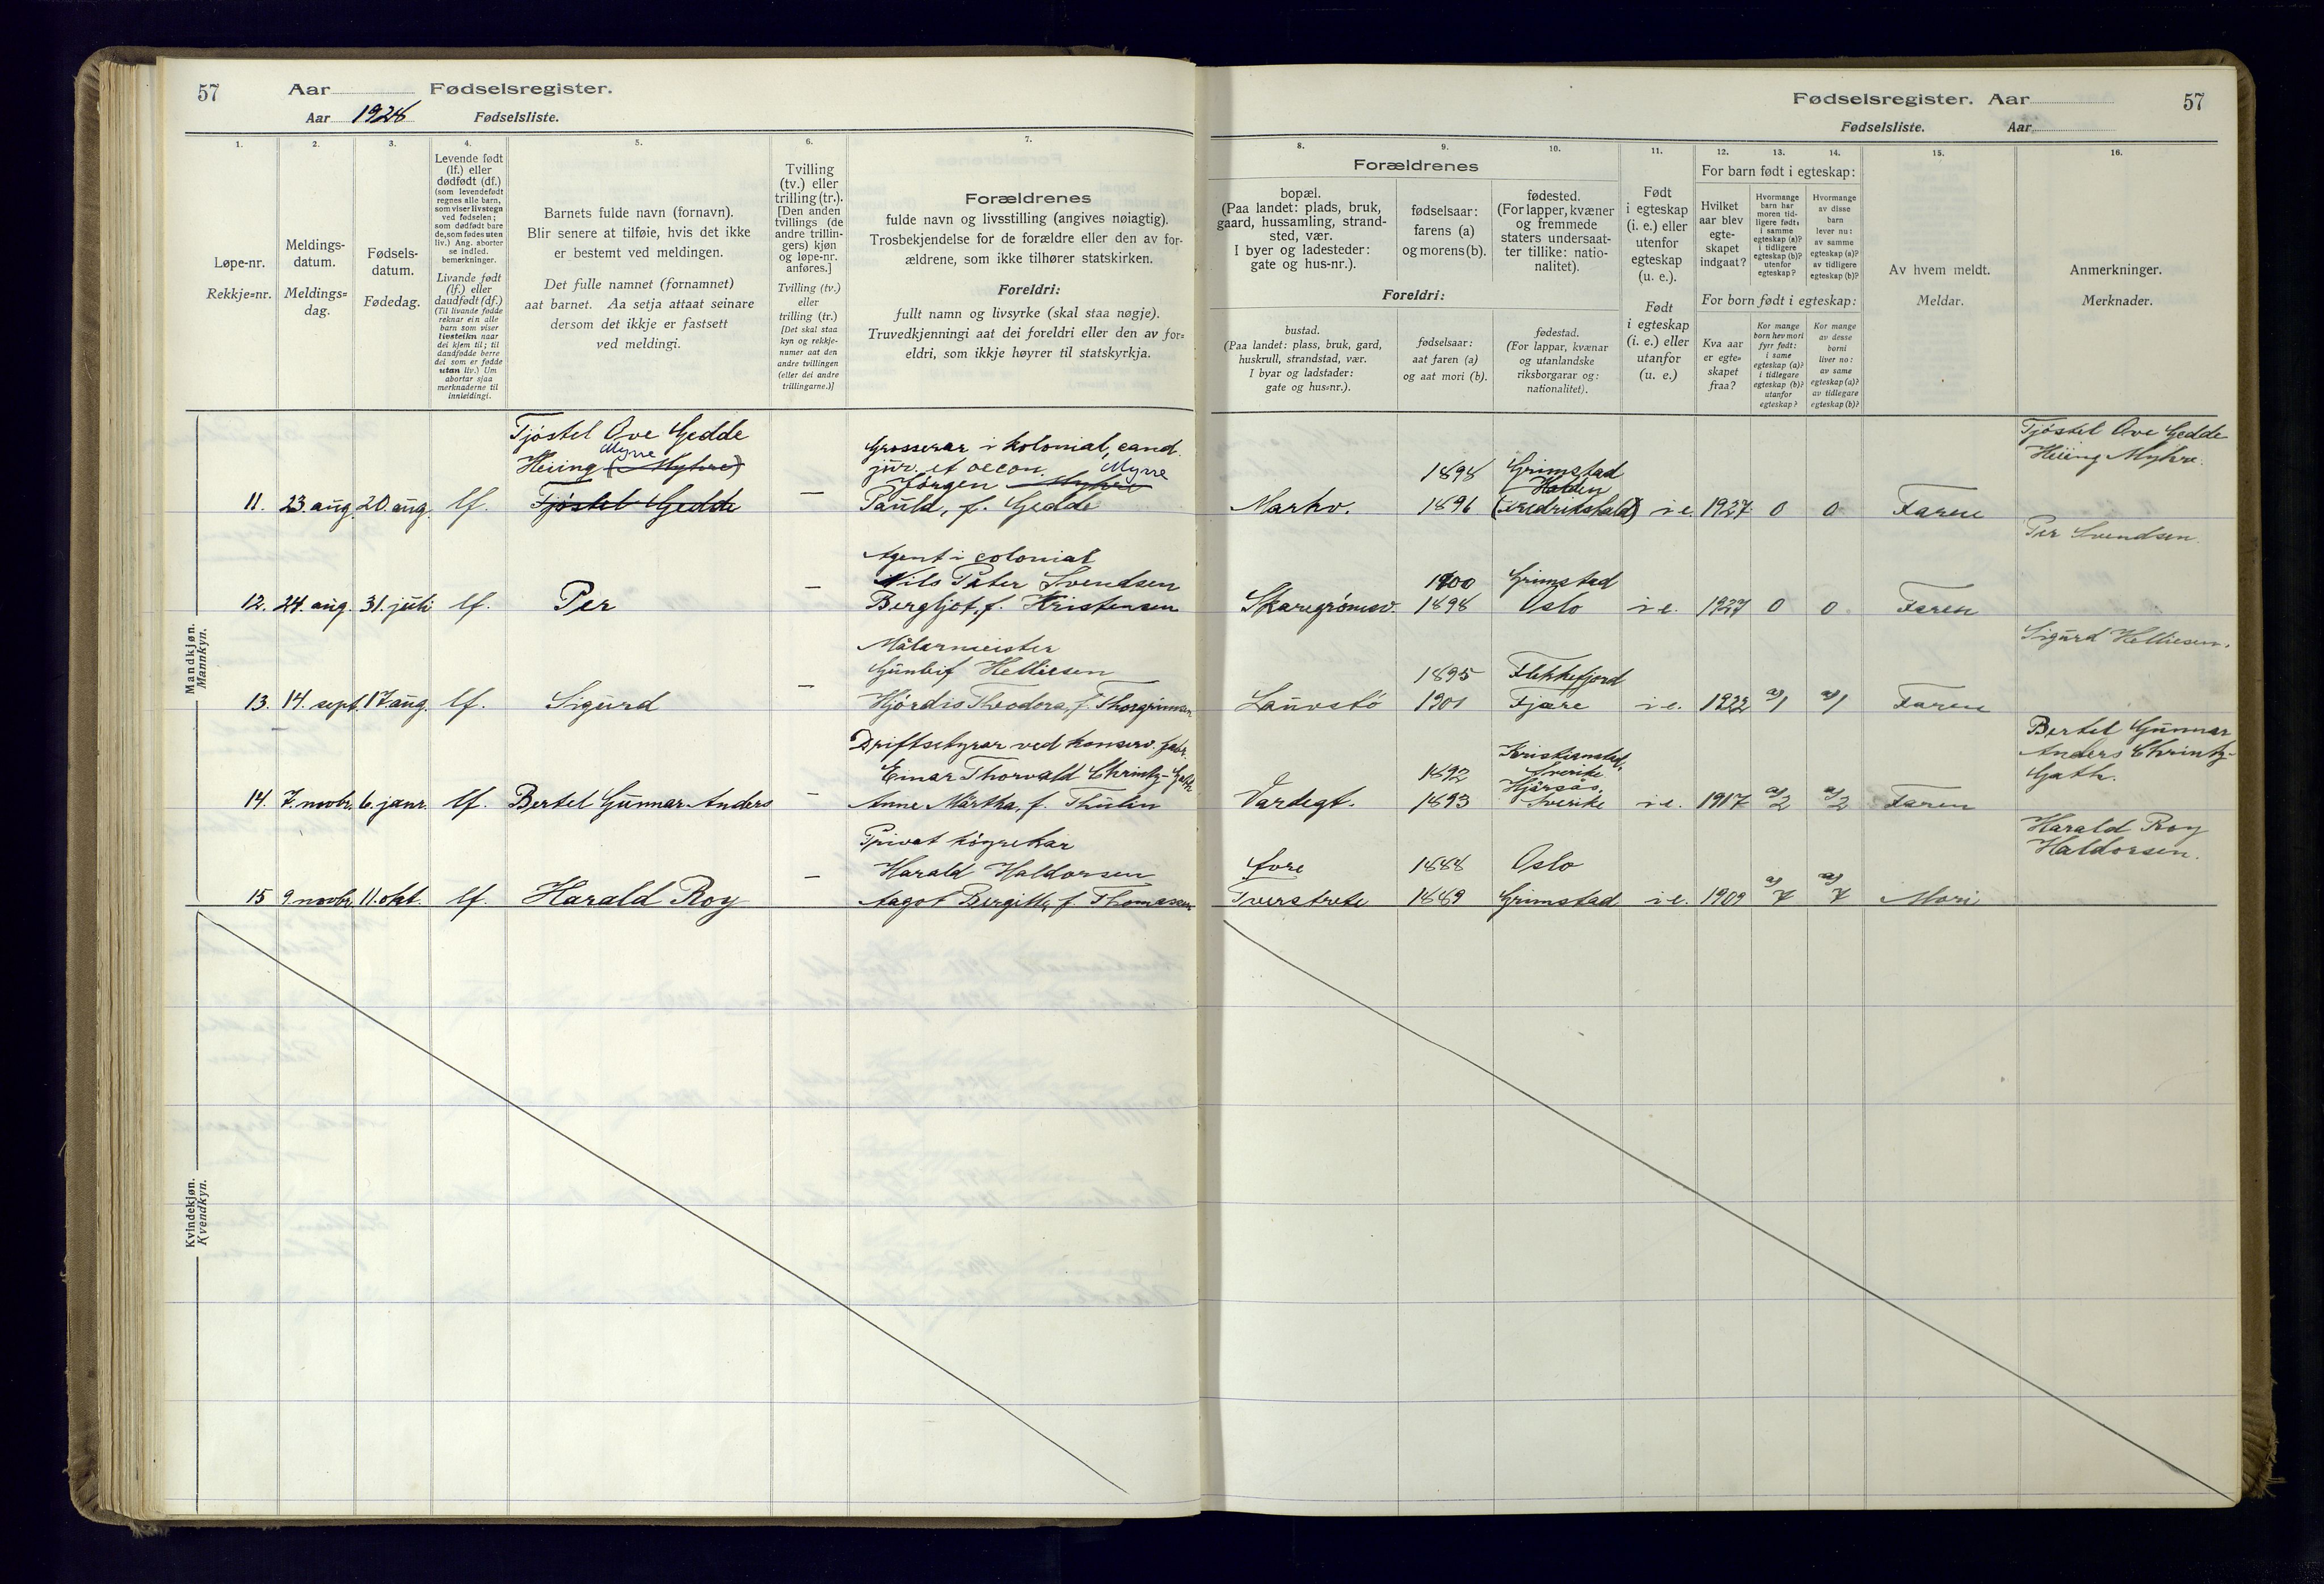 57 Aar Fødselsregister.
Aar 1928 Fødselsliste.
1. 2. 3. 4. 5. 6. 7.
Løpe-nr.
Rekkje=nr.
Meldings-
datum.
Meldings=
dag.
Fødsels-
datum.
Fødedag.
Levende født
(lf.) eller
dødfødt (df.)
(som levendefødt
regnes alle barn,
som viser livstegn
ved fødselen;
som dødfødt bare
de, som fødes uten
liv.) Ang. aborter
se indled.
bemerkninger.
Livande født
(lf.) eller
daudfødt (df.)
(Til livande fødde
reknar ein alle
barn som viser
livsteikn naar
dei kjem til; til
daudfødde berre
dei som er fødde
utan liv.) Um
abortar sjaa
merknaderne til
innleidingi.
Barnets fulde navn (fornavn).
Blir senere at tilføie, hvis det ikke
er bestemt ved meldingen.
Det fulle namnet (fornamnet)
aat barnet. Aa setja attaat seinare
dersom det ikkje er fastsett
ved meldingi.
Tvilling
(tv.) eller
trilling (tr.).
[Den anden
tvillings (de
andre trillin-
gers) kjøn
og løpe-nr.
anføres.]
Tvilling (tv.)
eller
trilling (tr.)
[Det skal staa
kyn og rekkje-
numer aat den
andre tvillingen
(eller dei andre
trillingarne.)]
Forældrenes
fulde navn og livsstilling (angives nøiagtig).
Trosbekjendelse for de forældre eller den av for-
ældrene, som ikke tilhører statskirken.
Foreldri:
fullt namn og livsyrke (skal staa nøgje).
Truvedkjenningi aat dei foreldri eller den av for=
eldri, som ikkje høyrer til statskyrkja.
Mandkjøn.
Mannkyn.
Tjöstel Ove Gedde
Myrre
Heiing (Myhre)
11. 23. aug. 20. aug. lf. Tjöstel Gedde —
Grosserar i kolonial, cand.
jur. et oecon. Myrre
Jörgen Myhre
Pauld, f. Gedde
12. 24. aug. 31. juli lf. Per —
Agent i colonial
Nils Peter Svendsen
Bergljot, f. Kristensen
13. 14. sept. 17. aug. lf. Sigurd —
Målarmeister
Gunleif Helliesen
Hjördis Theodora, f. Thorgrimsen
14. 7. novbr. 6. janr. lf. Bertel Gunnar Anders —
Driftsstyrar ved konserv. fabr.
Einar Thorvald Chrintz-Gath
Anne Märtha, f. Thulin
15 9. novbr. 11. okt. lf. Harald Roy —
Privat högrekar
Harald Haldorsen
Aagot Bergitte, f. Thomassen
Kvindekjøn.
Kvendkyn.
Fødselsregister. Aar 57
Fødselsliste. Aar
8. 9. 10. 11. 12. 13. 14. 15. 16.
Forældrenes
bopæl.
(Paa landet: plads, bruk,
gaard, hussamling, strand-
sted, vær.
I byer og ladesteder:
gate og hus-nr.).
fødselsaar:
farens (a)
og morens (b).
fødested.
(For lapper, kvæner
og fremmede
staters undersaat-
ter tillike: natio-
nalitet).
Foreldri:
bustad.
(Paa landet: plass, bruk, gard,
huskrull, strandstad, vær.
I byar og ladstader:
gate og hus=nr.).
fødselsaar:
aat faren (a)
og aat mori (b).
fødestad.
(For lappar, kvænar
og utanlandske
riksborgarar og:
nationalitet).
Født
i egteskap
(i. e.) eller
utenfor
egteskap
(u. e.).
Født
i egteskap
(i. e.) eller
utanfor
(u. e.)
For barn født i egteskap:
Hvilket
aar blev
egte-
skapet
indgaat?
Hvormange
barn har
moren tid-
ligere født,
i samme
egteskap (a)?
i tidligere
egteskap (b)?
utenfor
egteskap?
Hvormange
av disse
barn
lever nu:
av samme
egteskap (a)?
av tidligere
egteskap (b)?
For born født i egteskap:
Kva aar
er egte=
skapet
fraa?
Kor mange
born hev mori
fyrr født:
i same
egteskap (a)?
i tidlegare
egteskap (b)?
utanfor
egteskap?
Kor mange
av desse
borni
liver no:
av same
egteskap (a)?
av tidlegare
egteskap (b)?
Av hvem meldt.
Meldar.
Anmerkninger.
Merknader.
1898 Grimstad
Halden
Markv. 1896 (Fredrikshald) i e. 1927. 0 0 Faren
Tjöstel Ove Gedde
Heiing Myhre.
1900 Grimstad
Skaregrömsv. 1898 Oslo i e. 1927 0 0 Faren
Per Svendsen.
1895 Flekkefjord
Lauvstö 1901 Fjære i e. 1922 a/1 a/1 Faren
Sigurd Helliesen.
1892 Kristianstad,
Sverike
Vardegt. 1893 Hjärsås,
Sverike i e. 1917 a/2 a/2 Faren
Bertel Gunnar
Anders Chrintz-
Gath.
Övre 1888 Oslo
Tverstrete 1889 Grimstad i e. 1909 a/7 a/7 Mori
Harald Roy
Haldorsen.